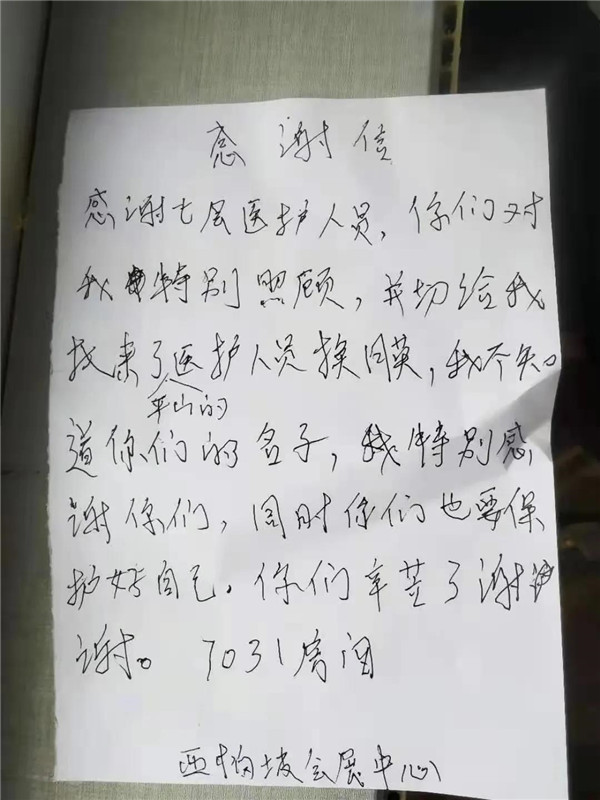 感谢信
感谢七层医护人员，你们对
我特别照顾，并切给我
找来了医护人员换
平山的
道你们的名子，我特别感
谢你们，同时你们也要保
护好自己。你们辛苦了谢
谢。 7031房间
会展中心